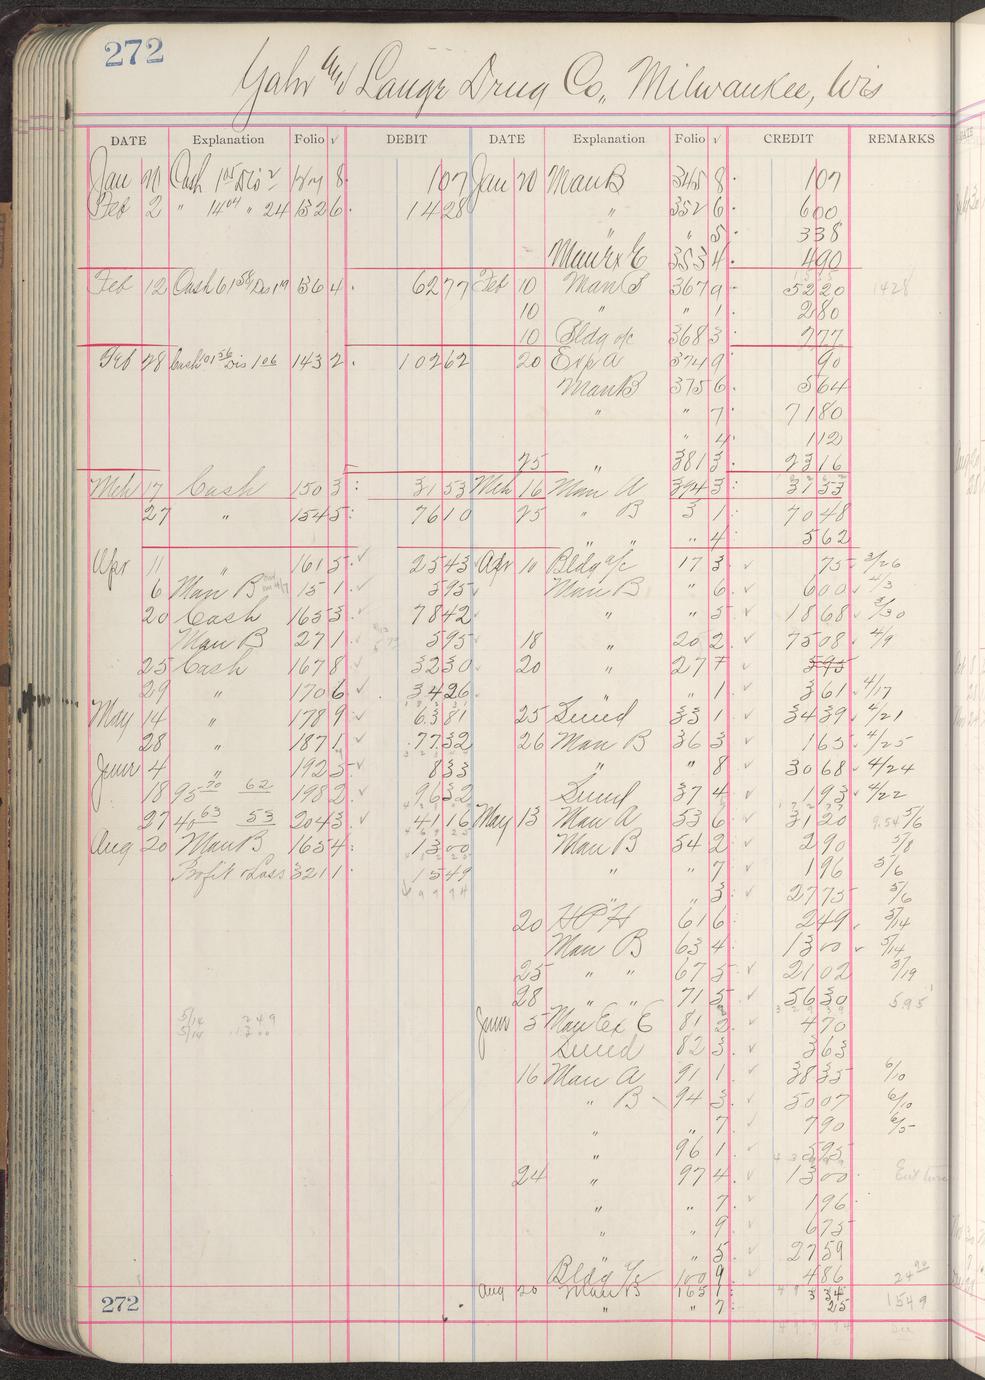 272
Yahr and Lange Drug Co., Milwaukee, Wis
DATE Explanation Folio √ DEBIT DATE Explanation Folio √ CREDIT REMARKS
Jan Cash 1 05 Dis 2 8 1 07 Jan 20 Man B 345 8 1 07
Feb 2 " 14 04 " 24 132 6 14 28 " 352 6 6 00
" " 5 3 38
Man Ex E 353 4 4 90
Feb 12 Cash 61 58 Dis 1 19 136 4 62 77 Feb 10 Man B 367 9 52 20 1428
10 " " 1 2 80
10 Bldg a/c 368 3 7 77
Feb 28 Cash 101 56 Dis 1 06 143 2 102 62 20 Exp A 374 9 90
Man B 375 6 5 64
" " 7 71 80
" 4 1 12
25 " 381 3 23 16
Mch 17 Cash 150 3 31 53 Mch 16 Man A 394 3 31 53
27 " 154 5 76 10 25 " B 3 1 70 48
" " " 4 5 62
Apr 11 " 161 5 √ 25 43 Apr 10 Bldg a/c 17 3 √ 75 3/26
6 Man B 15 1 √ 5 95 √ Man B " 6 √ 6 00 √ 4/3
20 Cash 165 3 √ 78 42 √ " " 5 √ 18 68 √ 3/30
Man B 27 1 √ 5 95 √ 18 " 20 2 √ 75 08 √ 4/9
25 Cash 167 8 √ 32 30 √ 20 " 27 7 √ 5 95
29 " 170 6 √ 34 26 " " 1 √ 3 61 √ 4/17
May 14 " 178 9 √ 63 81 25 Sund 33 1 √ 34 39 √ 4/21
28 " 187 1 √ 77 32 26 Man B 36 3 √ 1 65 √ 4/25
June 4 " 192 5 √ 8 33 " " 8 √ 30 68 √ 4/24
18 95 70 62 198 2 √ 96 32 Sund 37 4 √ 1 93 √ 4/22
27 40 63 53 204 3 √ 41 16 May 13 Man A 53 6 √ 31 20 9.54 5/6
Aug 20 Man B 165 4 13 00 Man B 54 2 √ 2 90 5/8
Profit & Loss 321 1 15 49 " " 7 √ 1 96 5/6
" 3 √ 27 75 5/6
20 H P H 61 6 2 49 √ 5/14
Man B 63 4 13 00 √ 5/14
25 " " 67 5 √ 21 02 5/19
28 " " 71 5 √ 56 30 595
5/14 2 49
5/14 13 00
June 5 Man Ex E 81 2 √ 4 70
Sund 82 3 √ 3 63
16 Man A 91 1 √ 38 35 6/10
" B 94 3 √ 50 07 6/10
" " 7 √ 7 90 6/5
" 96 1 √ 5 95
24 " 97 4 √ 13 00
" " 7 √ 1 96
" " 9 √ 6 75
" " 5 √ 27 59
Bldg a/c 100 9 √ 4 86 24 20
272 Aug 20 Man B 165 1 3 34 1549
" 7 25